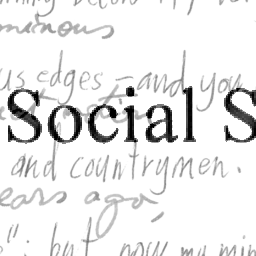 minous
us edges – and you
Social S
and countrymen.
ears ago,
": but now my min